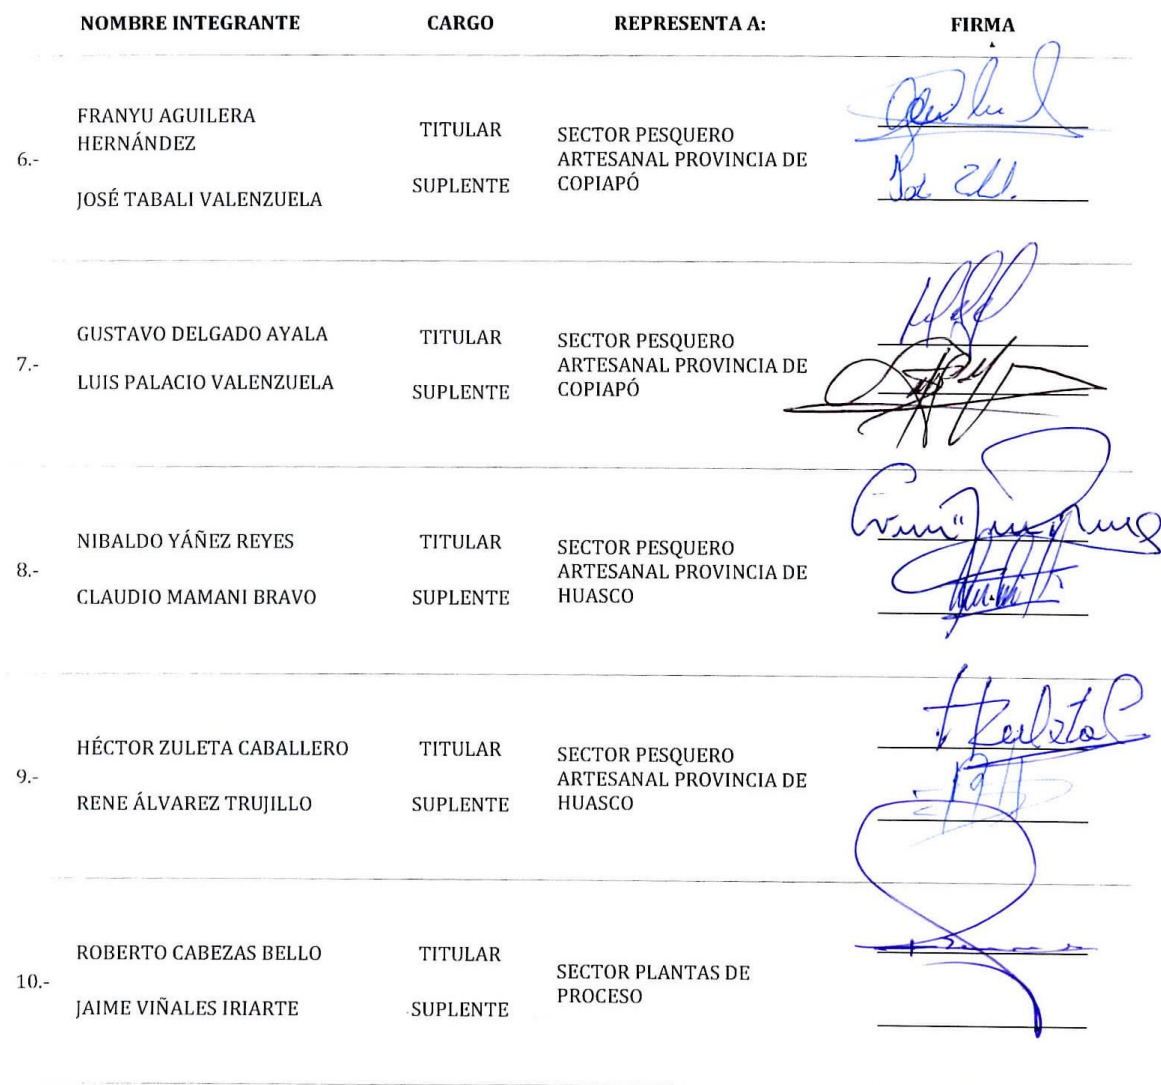 NOMBRE INTEGRANTE CARGO REPRESENTA A: FIRMA
FRANYU AGUILERA
HERNÁNDEZ
TITULAR
6.-
SECTOR PESQUERO
ARTESANAL PROVINCIA DE
COPIAPÓ
JOSÉ TABALI VALENZUELA
SUPLENTE
GUSTAVO DELGADO AYALA
TITULAR
7.-
SECTOR PESQUERO
ARTESANAL PROVINCIA DE
COPIAPÓ
LUIS PALACIO VALENZUELA
SUPLENTE
NIBALDO YÁÑEZ REYES
TITULAR
8.-
SECTOR PESQUERO
ARTESANAL PROVINCIA DE
HUASCO
CLAUDIO MAMANI BRAVO
SUPLENTE
HÉCTOR ZULETA CABALLERO
TITULAR
9.-
SECTOR PESQUERO
ARTESANAL PROVINCIA DE
HUASCO
RENE ÁLVAREZ TRUJILLO
SUPLENTE
ROBERTO CABEZAS BELLO
TITULAR
10.-
SECTOR PLANTAS DE
PROCESO
JAIME VIÑALES IRIARTE
SUPLENTE